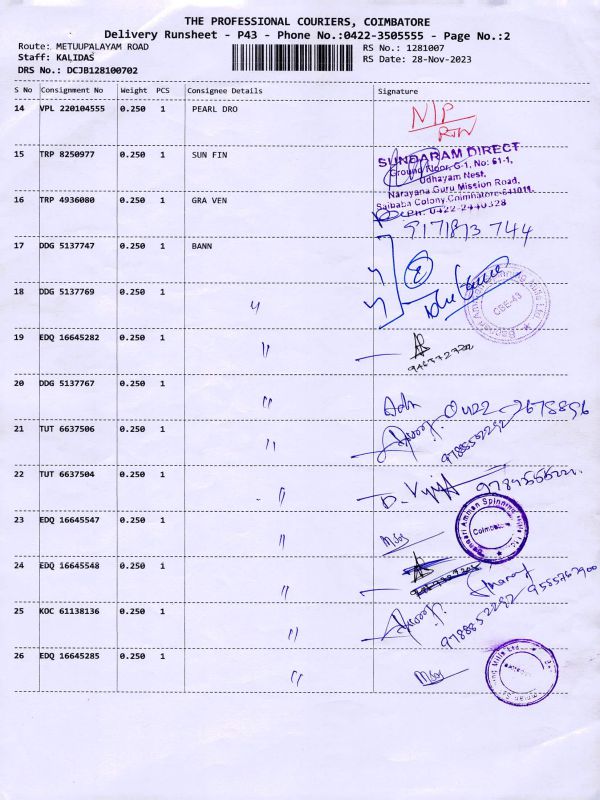 THE PROFESSIONAL COURIERS, COIMBATORE
Delivery Runsheet - P43 - Phone No.:0422-3505555 - Page No.:2
Route: METUUPALAYAM ROAD
RS No.: 1281007
Staff: KALIDAS
RS Date: 28-Nov-2023
DRS No.: DCJB128100702
S No Consignment No Weight PCS Consignee Details Signature
14 VPL 220104555 0.250 1 PEARL DRO
N/P
RTN
15 TRP 8250977 0.250 1 SUN FIN
SUNDARAM DIRECT
Ground Floor, G-1, No: 61-1,
Udhayam Nest,
Narayana Guru Mission Road,
Saibaba Colony, Coimbatore-641011.
Ph: 0422-2440328
16 TRP 4936080 0.250 1 GRA VEN
9171893 744
17 DDG 5137747 0.250 1 BANN
18 DDG 5137769 0.250 1 "
CBE-43
19 EDQ 16645282 0.250 1 "
20 DDG 5137767 0.250 1 "
0422 - 2678896
21 TUT 6637506 0.250 1 "
9788852292
22 TUT 6637504 0.250 1 "
23 EDQ 16645547 0.250 1 "
Bannari Amman Spinning Mills Ltd.
Coimbatore
24 EDQ 16645548 0.250 1 "
9585762900
25 KOC 61138136 0.250 1 "
9788852292
26 EDQ 16645285 0.250 1 "